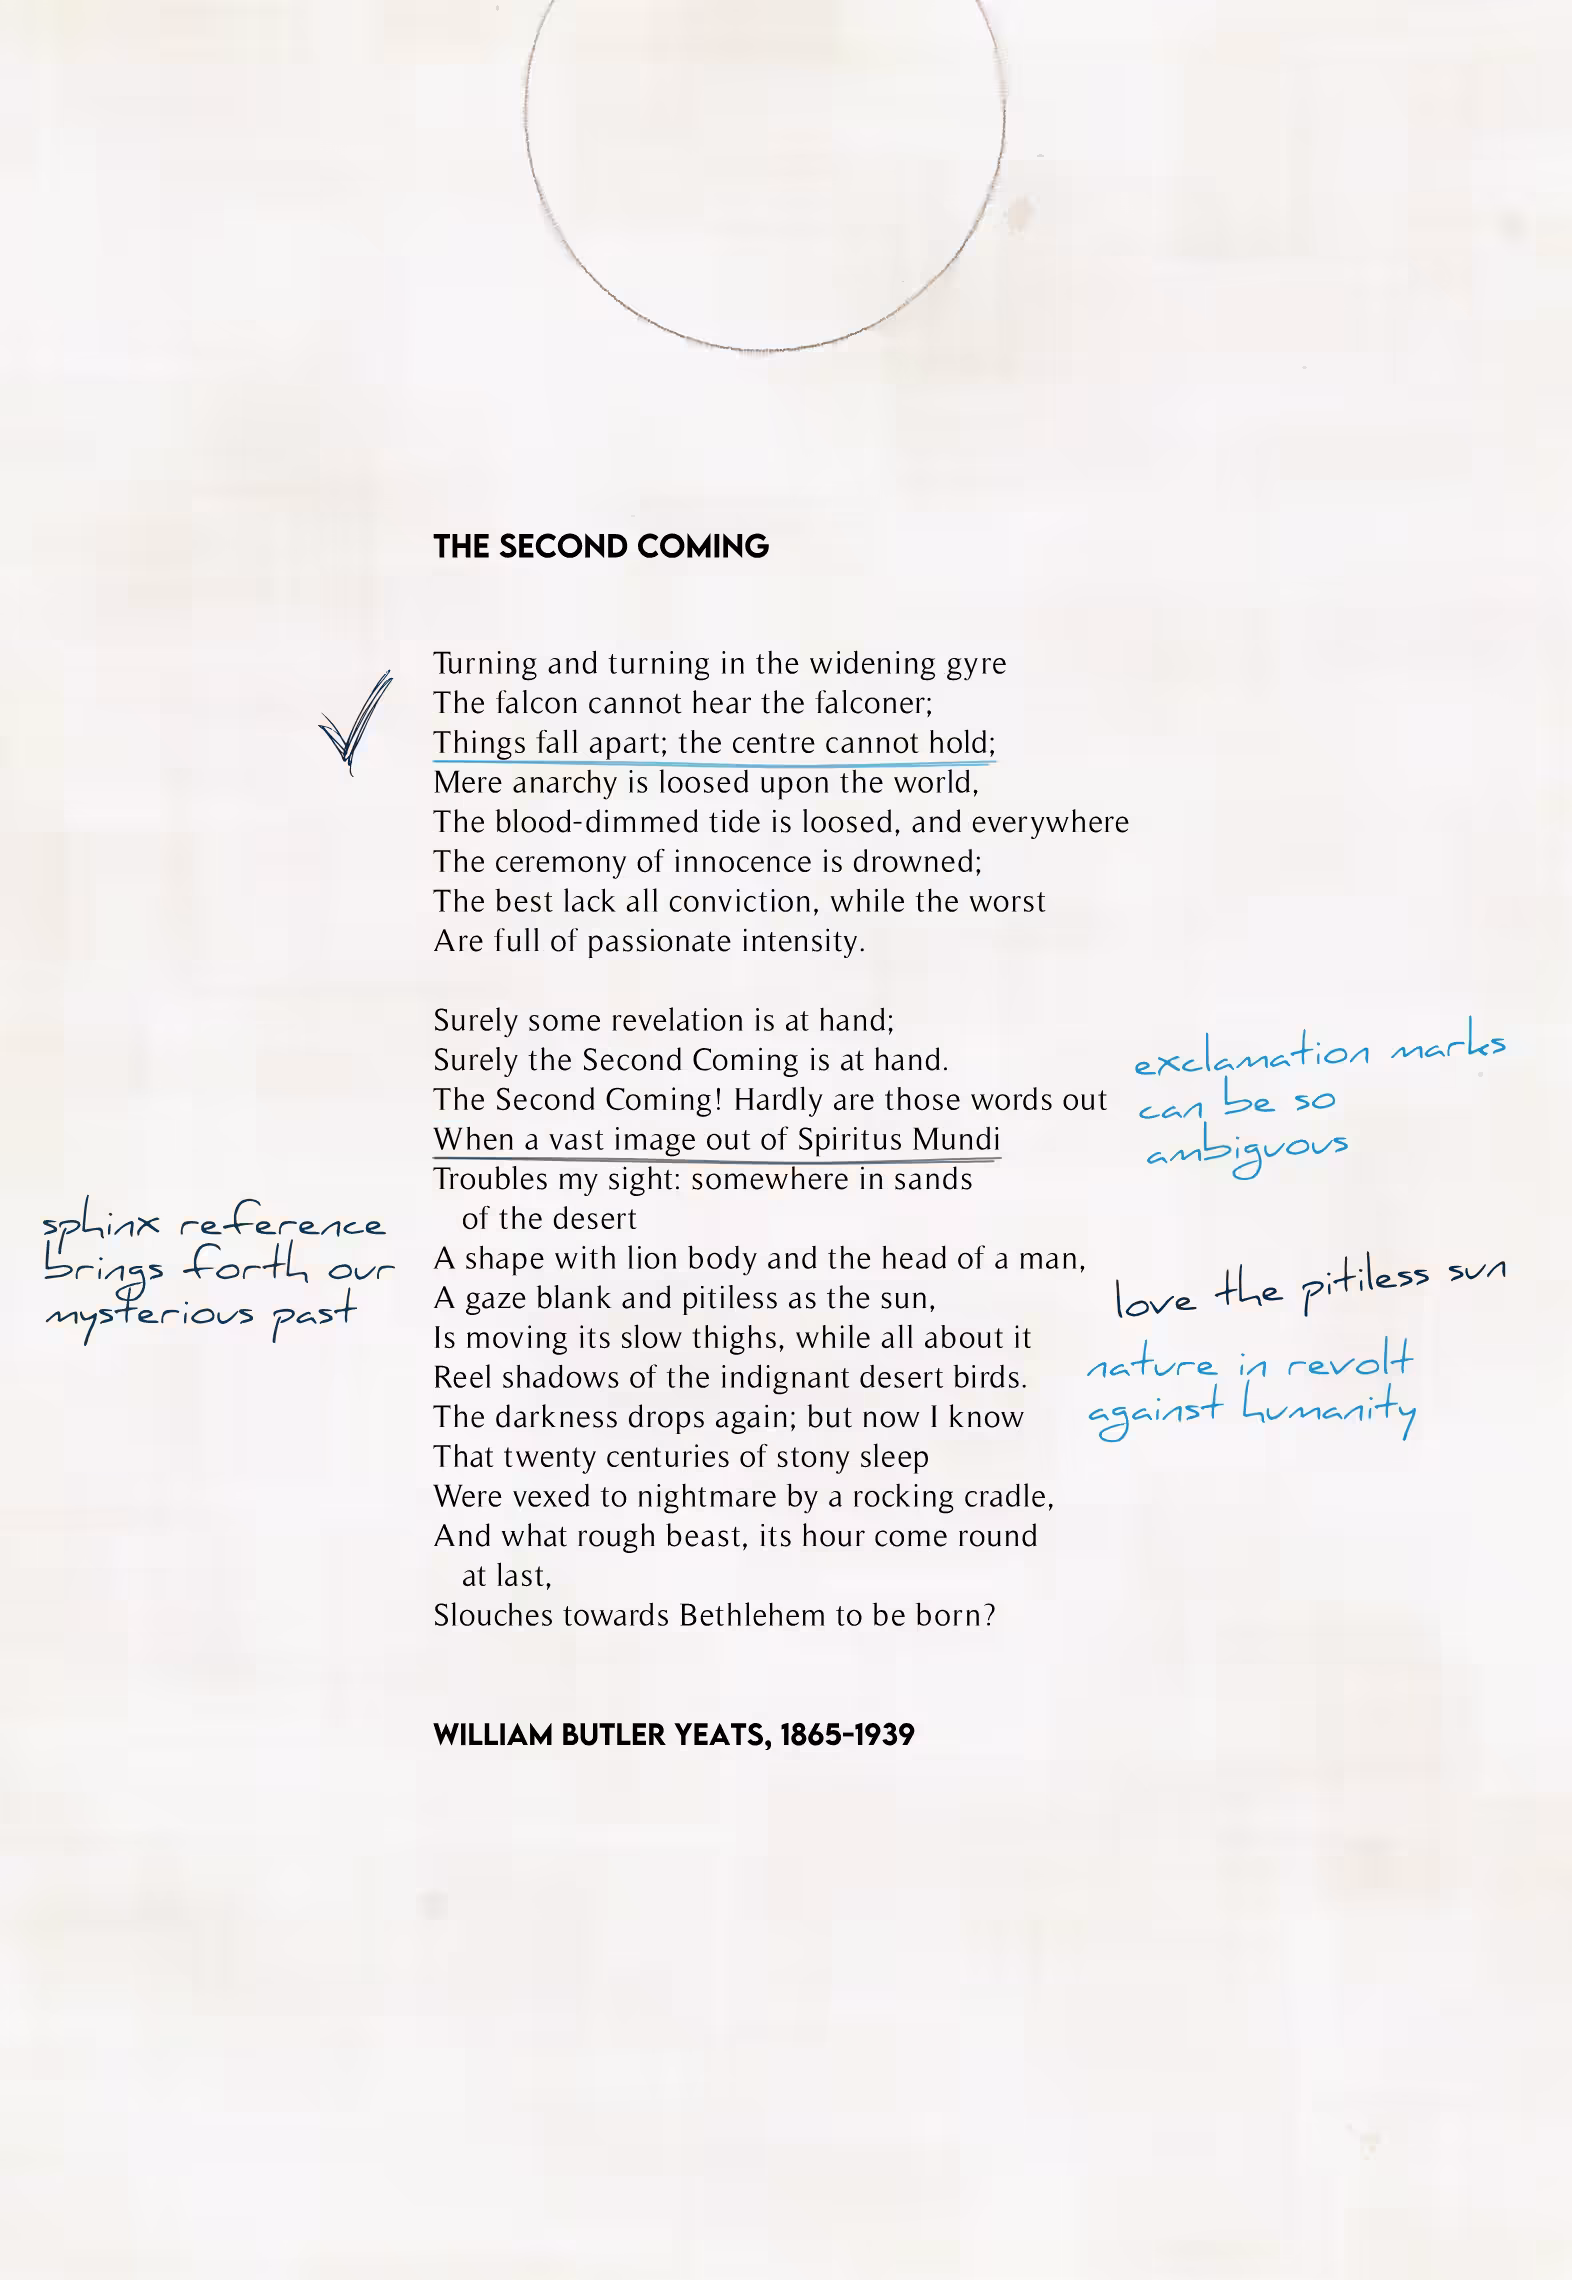 THE SECOND COMING
Turning and turning in the widening gyre
The falcon cannot hear the falconer;
Things fall apart; the centre cannot hold;
Mere anarchy is loosed upon the world,
The blood-dimmed tide is loosed, and everywhere
The ceremony of innocence is drowned;
The best lack all conviction, while the worst
Are full of passionate intensity.
Surely some revelation is at hand;
Surely the Second Coming is at hand.
The Second Coming! Hardly are those words out
When a vast image out of Spiritus Mundi
Troubles my sight: somewhere in sands
of the desert
A shape with lion body and the head of a man,
A gaze blank and pitiless as the sun,
Is moving its slow thighs, while all about it
Reel shadows of the indignant desert birds.
The darkness drops again; but now I know
That twenty centuries of stony sleep
Were vexed to nightmare by a rocking cradle,
And what rough beast, its hour come round
at last,
Slouches towards Bethlehem to be born?
WILLIAM BUTLER YEATS, 1865-1939
exclamation marks
can be so
ambiguous
sphinx reference
brings forth our
mysterious past
love the pitiless sun
nature in revolt
against humanity